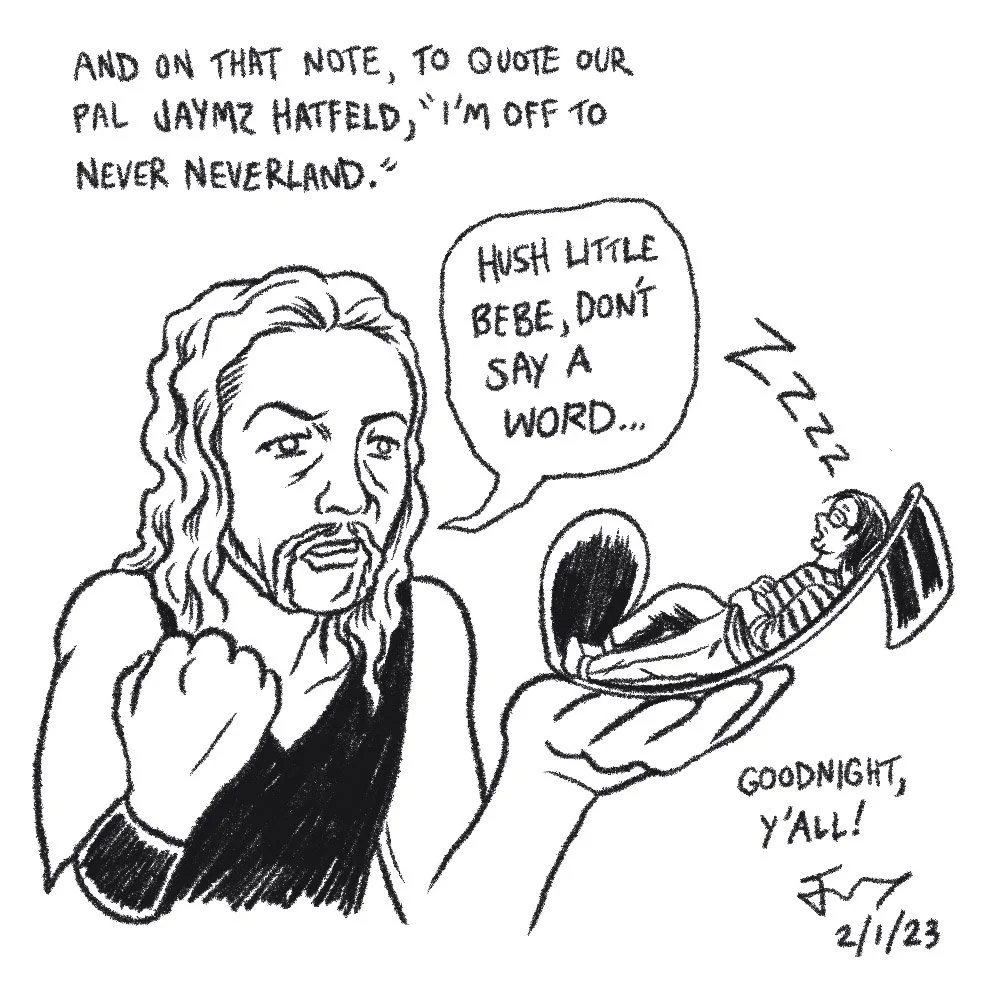 AND ON THAT NOTE, TO QUOTE OUR
PAL JAYMZ HATFELD, "I'M OFF TO
NEVER NEVERLAND."
HUSH LITTLE
BEBE, DON'T
SAY A
WORD...
ZZZZ
GOODNIGHT,
Y'ALL!
2/1/23